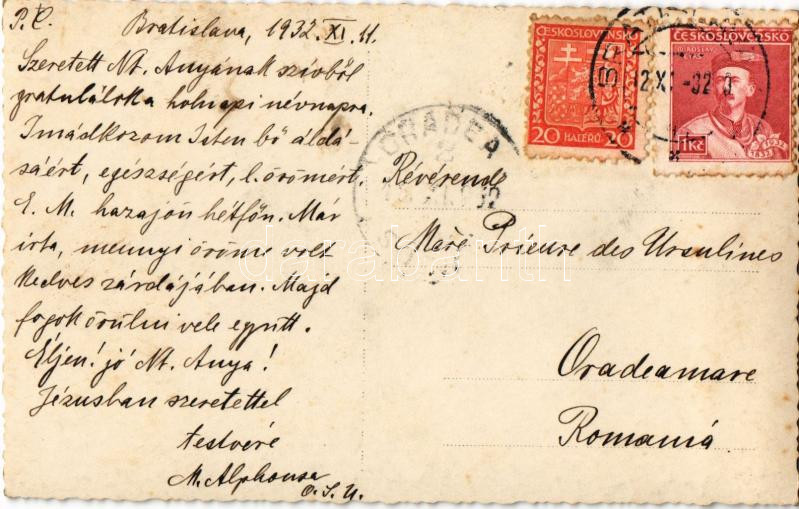 P. C. Bratislava, 1932. XI. 11.
Szeretett Nt. Anyának szívből
gratulálok a holnapi névnapra.
Imádkozom Isten bő áldá-
sáért, egészségért, l. örömért.
E. M. hazajön hétfőn. Már
írta, mennyi öröme volt
kedves zárdájában. Majd
fogok örülni vele együtt.
Éljen! jó Nt. Anya!
Jézusban szeretettel
testvére
M. Alphonsa
O. S. U.
ČESKOSLOVENSKO
20 HALÉŘŮ 20
ČESKOSLOVENSKO
MIROSLAV
1 Kč
1832 1932
12.XI.32
ORADEA
Révérende
Marè Prieure des Ursulines
Oradeamare
Romaniá
darabanth